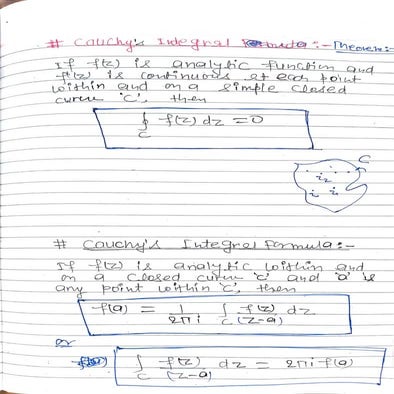 # Cauchy's Integral Formula :- Theorem:-
If f(z) is analytic function and
f'(z) is continuous at each point
within and on a simple closed
curve 'C', then
∮_C f(z) dz = 0
C
# Cauchy's Integral Formula:-
If f(z) is analytic within and
on a closed curve 'c' and 'a' is
any point within 'C', then
f(a) = 1/2πi ∫_C f(z)/(z-a) dz
or
∫_C f(z)/(z-a) dz = 2πi f(a)